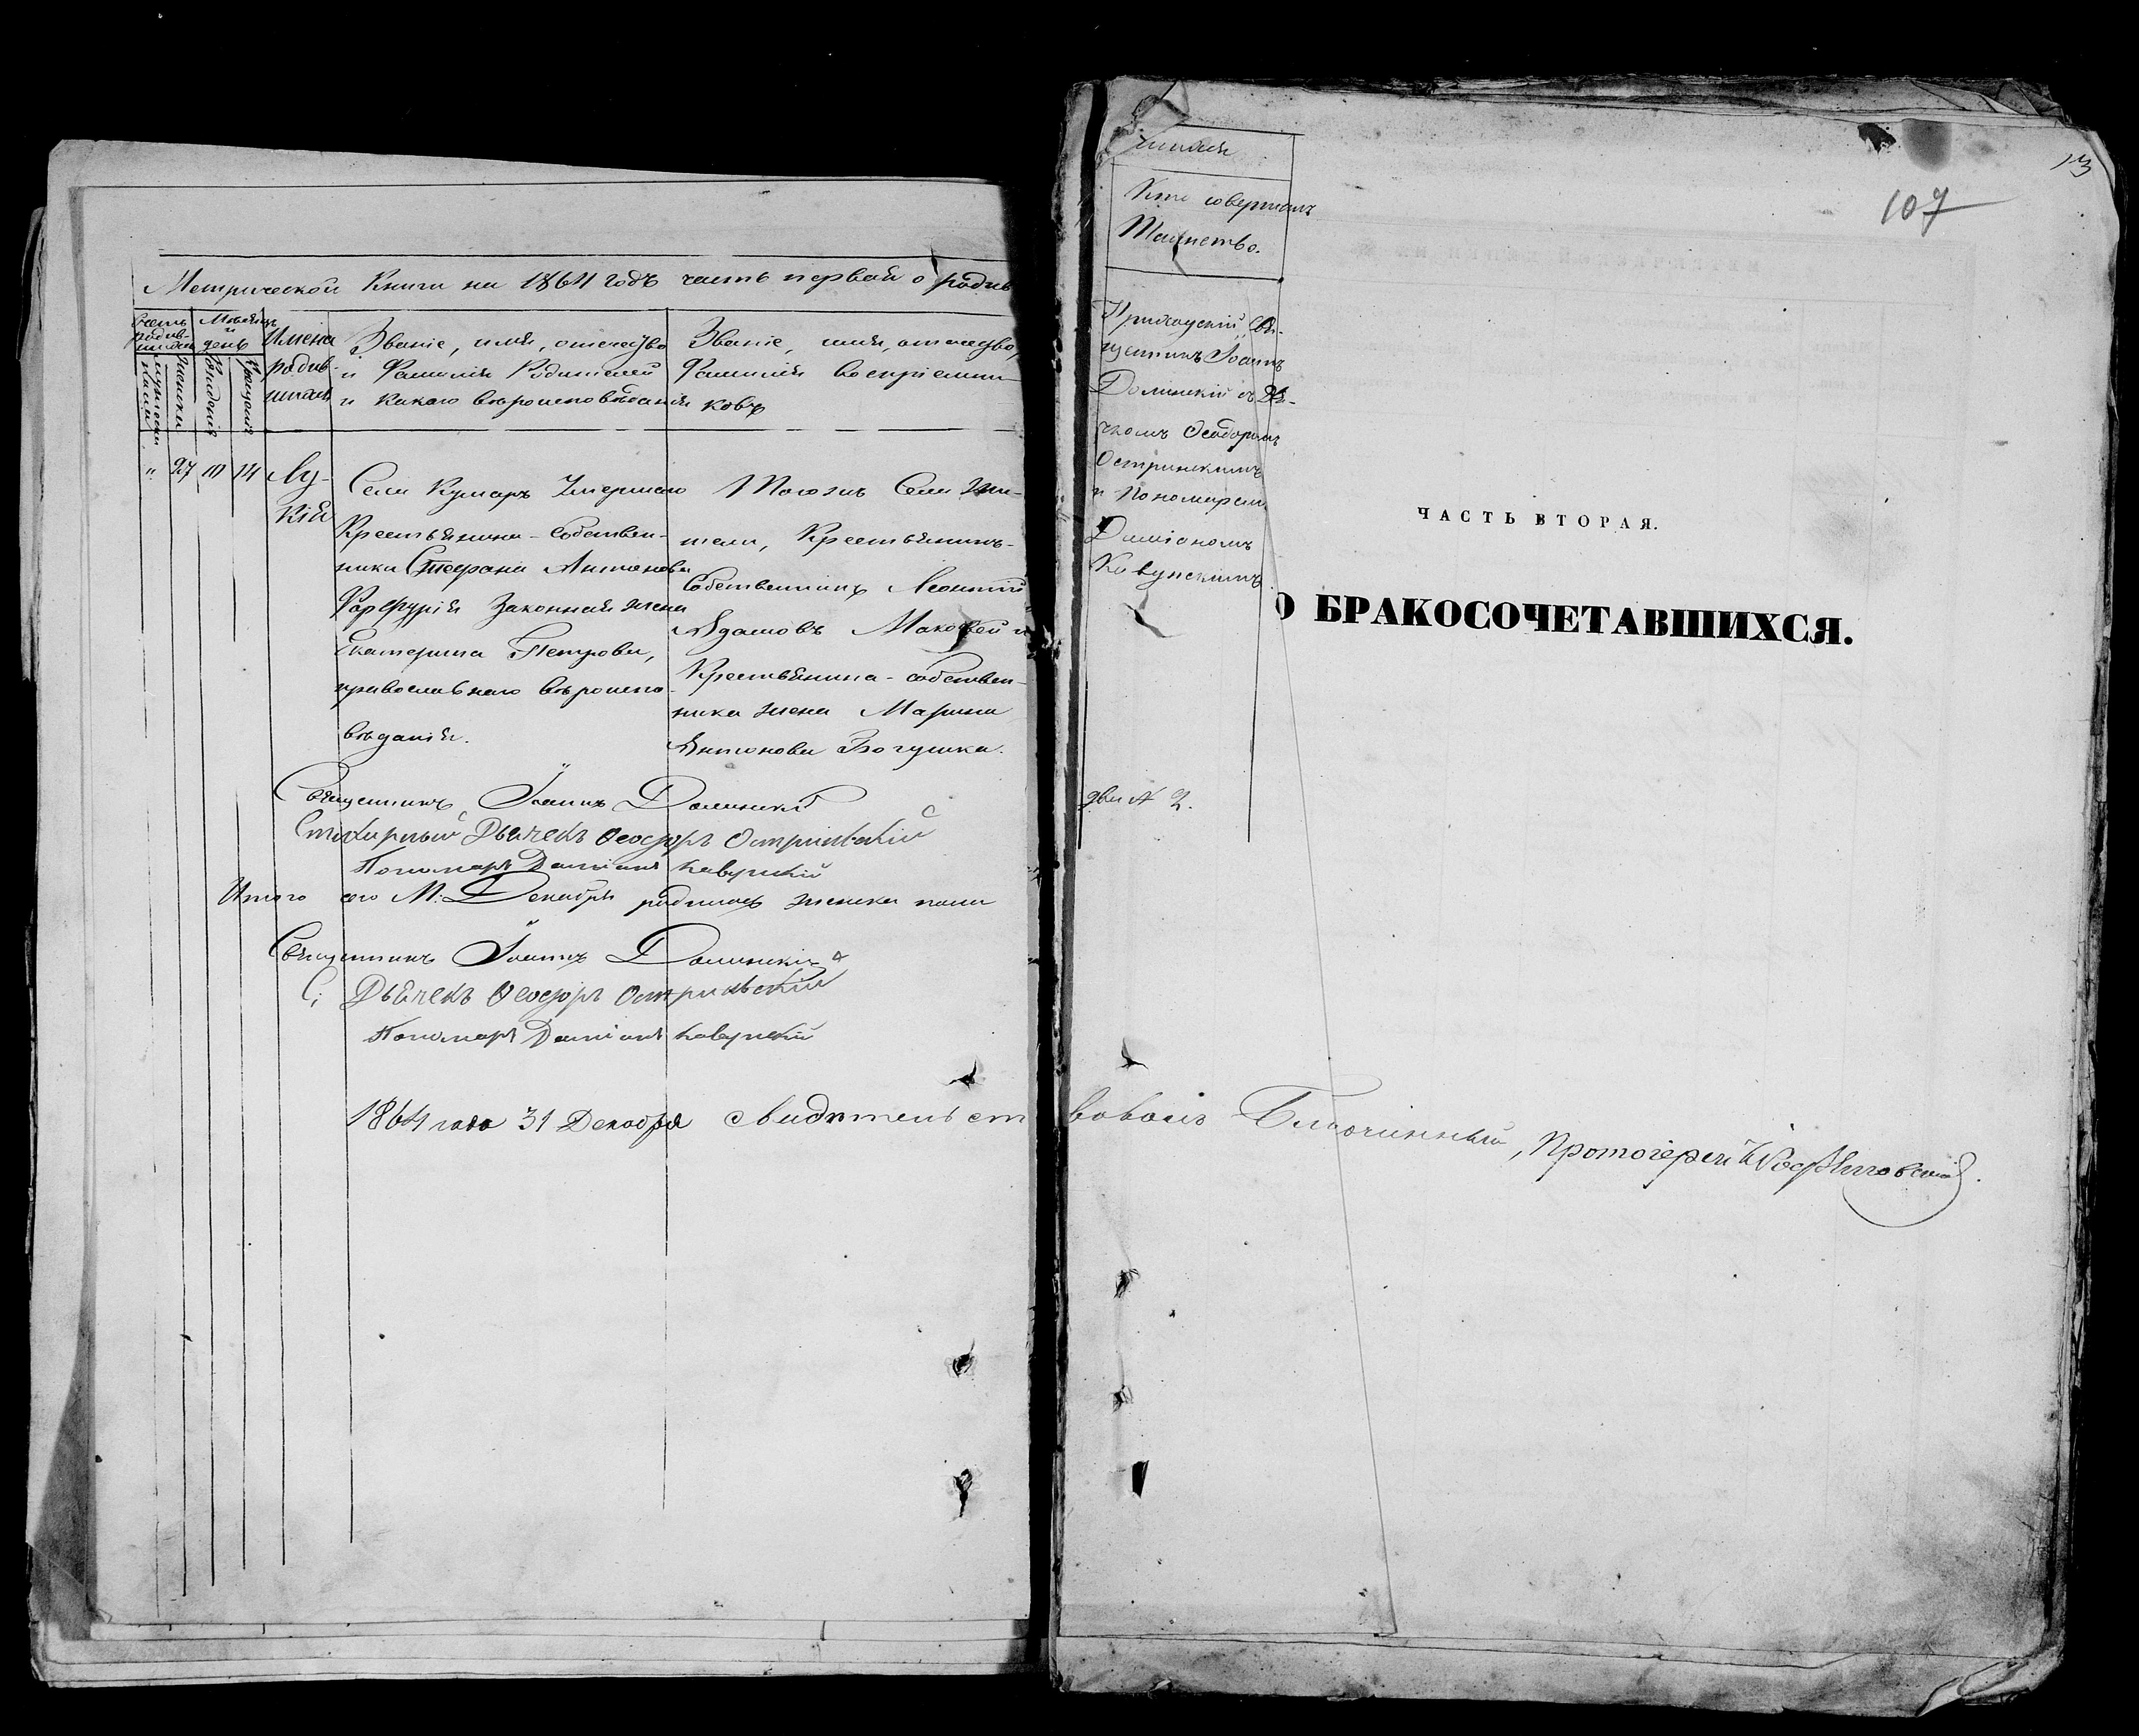 Метрической Книги на 1864 годъ часть первая о родив
Счетъ родив- шихся
Мѣсяцъ и день
Имена родив- шихся
Званіе, имя, отечество
и Фамилія Родителей
и какого вѣроисповѣданія
Званіе, имя, отечество,
Фамилія воспріемни-
ковъ
мужеска пола
женска
рожденія
крещенія
" 27 10 14 Лу-
кія
Села Кумаръ
Крестьянина-собствен-
ника Стефана Антонова
законная жена
Екатерина Петрова,
православнаго вѣроиспо-
вѣданія.
Тогожъ Села жи-
тели, Крестьянинъ-
Собственникъ Леонтій
Адамовъ Маковей и
Крестьянина-собствен-
ника жена Марина
Антонова Богушка.
Священникъ Іоаннъ Долинскій
Стихарный Дьячекъ Ѳеодоръ Остріевскій
Пономарь Даміанъ Кавунскій
Итого сего М: Декабря родилось женска пола
Священникъ Іоаннъ Долинскій
С; Дьячекъ Ѳеодоръ Остріевскій
Пономарь Даміанъ Кавунскій
1864 года 31 Декабря Свидѣтельствовалъ Благочинный, Протоіерей
шихся
Кто совершалъ
Таинство.
Приходскій Свя-
щенникъ Іоаннъ
Долинскій съ Дья-
чкомъ Ѳеодоромъ
и Пономаремъ
Даміаномъ
Кавунскимъ
2.
107
13
ЧАСТЬ ВТОРАЯ.
О БРАКОСОЧЕТАВШИХСЯ.